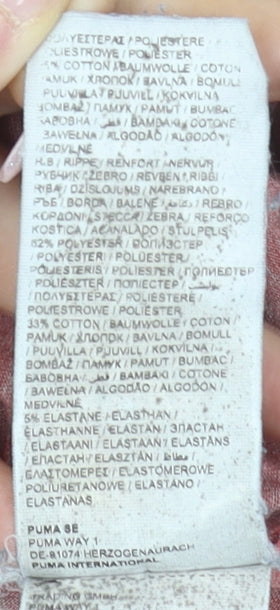 ΠΟΛΥΕΣΤΕΡΑΣ / POLIESTERE /
POLIESTROWE / POLIÉSTER
5% COTTON / BAUMWOLLE / COTON
PAMUK / ХЛОПОК / BAVLNA / BOMULL
PUUVILLA / PUUVILL / KOKVILNA
BOMBAŽ / ПАМУК / PAMUT / BUMBAC
БАВОВНА / قطن / ΒΑΜΒΑΚΙ / COTONE
BAWEŁNA / ALGODÃO / ALGODÓN
MEDVILNĖ
RIB / RIPPE / RENFORT / NERVÜR /
РУБЧИК / ŽEBRO / REVBEN / RIBBI /
RIBA / DZISLOJUMS / NAREBRANO /
/ BORDA / BALENE / دعامة / REBRO
ΚΟΡΔΟΝΙ / STECCA / ZEBRA / REFORÇO
KOSTICA / ACANALADO / STULPELIS
62% POLYESTER / ПОЛИЭСТЕР
/ POLYESTERI / POLÜESTER /
POLIESTERIS / POLIESTER / ПОЛИЕСТЕР
/ POLIÉSZTER / ПОЛІЕСТЕР / بوليستر
/ ΠΟΛΥΕΣΤΕΡΑΣ / POLIESTERE /
POLIESTROWE / POLIÉSTER
33% COTTON / BAUMWOLLE / COTON /
PAMUK / ХЛОПОК / BAVLNA / BOMULL
/ PUUVILLA / PUUVILL / KOKVILNA /
BOMBAŽ / ПАМУК / PAMUT / BUMBAC /
БАВОВНА / قطن / ΒΑΜΒΑΚΙ / COTONE
/ BAWEŁNA / ALGODÃO / ALGODÓN /
MEDVILNĖ
5% ELASTANE / ELASTHAN /
ÉLASTHANNE / ELASTAN / ЭЛАСТАН
/ ELASTAANI / ELASTAAN / ELASTĀNS
/ ЕЛАСТАН / ELASZTÁN / مطاط /
ΕΛΑΣΤΟΜΕΡΕΣ / ELASTOMEROWE
POLIURETANOWE / ELASTANO /
ELASTANAS
PUMA SE
PUMA WAY 1
DE-91074 HERZOGENAURACH
PUMA INTERNATIONAL
TRADING GMBH
PUMA WAY 1